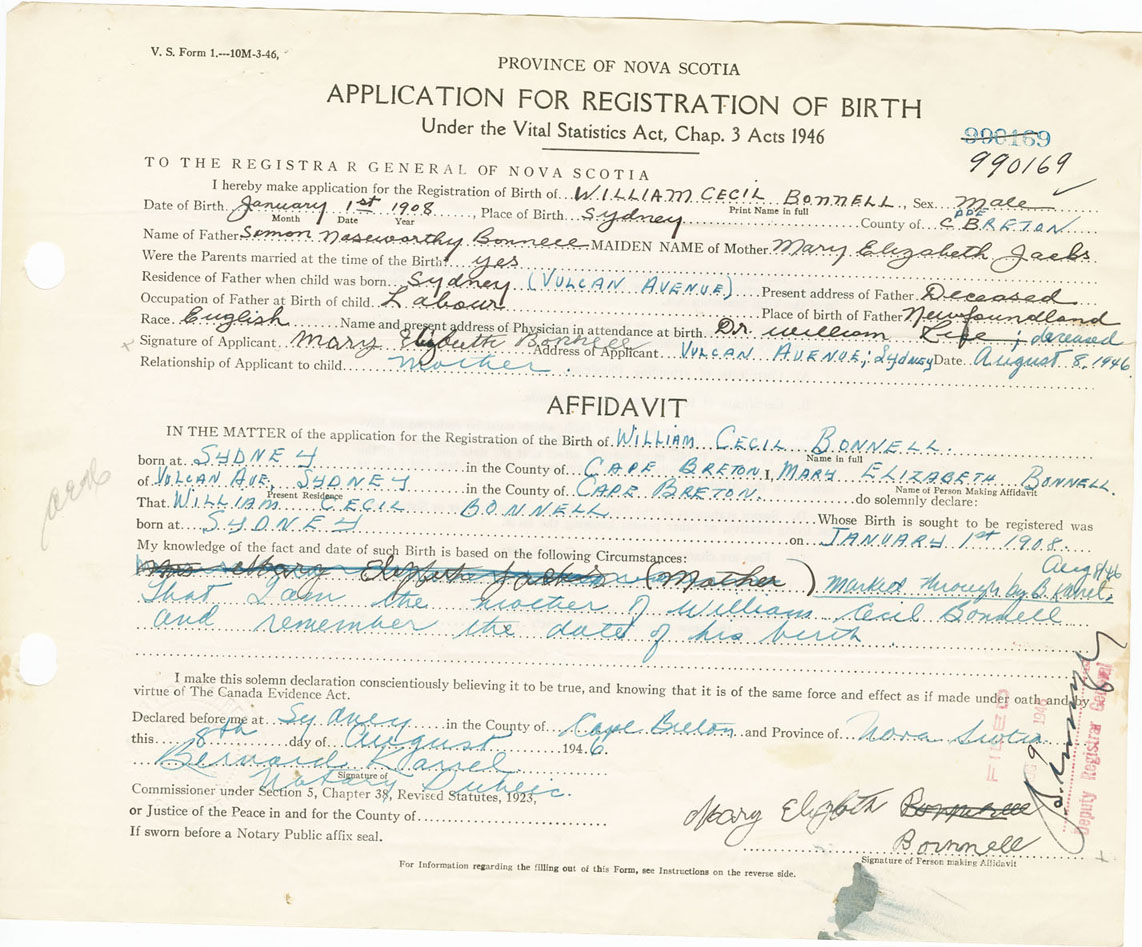 V. S. Form 1.---10M-3-46,
PROVINCE OF NOVA SCOTIA
APPLICATION FOR REGISTRATION OF BIRTH
Under the Vital Statistics Act, Chap. 3 Acts 1946
990169
TO THE REGISTRAR GENERAL OF NOVA SCOTIA
I hereby make application for the Registration of Birth of WILLIAM CECIL BONNELL, Sex Male
Print Name in full
Date of Birth January 1st 1908, Place of Birth Sydney County of CAPE BRETON
Month Date Year
Name of Father Simon Noseworthy Bonnell MAIDEN NAME of Mother Mary Elizabeth Jacobs
Were the Parents married at the time of the Birth? yes
Residence of Father when child was born Sydney (VULCAN AVENUE) Present address of Father Deceased
Occupation of Father at Birth of child Labour Place of birth of Father Newfoundland
Race English Name and present address of Physician in attendance at birth Dr. William ; deceased
Signature of Applicant Mary Elizabeth Bonnell Address of Applicant VULCAN AVENUE, SYDNEY Date August 8, 1946
Relationship of Applicant to child Mother.
AFFIDAVIT
IN THE MATTER of the application for the Registration of the Birth of WILLIAM CECIL BONNELL
Name in full
born at SYDNEY in the County of CAPE BRETON I, MARY ELIZABETH BONNELL
Name of Person Making Affidavit
of VULCAN AVE, SYDNEY in the County of CAPE BRETON. do solemnly declare:
Present Residence
That WILLIAM CECIL BONNELL Whose Birth is sought to be registered was
born at SYDNEY on JANUARY 1st 1908
My knowledge of the fact and date of such Birth is based on the following Circumstances:
Aug 8/46
Mrs Mary (Mother) marked through by B. Karrel
That I am the mother of William Cecil Bonnell
and remember the date of his birth
I make this solemn declaration conscientiously believing it to be true, and knowing that it is of the same force and effect as if made under oath and by
virtue of The Canada Evidence Act.
Declared before me at Sydney in the County of Cape Breton and Province of Nova Scotia
this 8th day of August 1946
Bernard Karrel
Signature of
Notary Public.
Commissioner under Section 5, Chapter 38, Revised Statutes, 1923,
or Justice of the Peace in and for the County of
If sworn before a Notary Public affix seal.
Mary Elizbth
Bonnell
Signature of Person making Affidavit
FILED
Deputy Registrar General
For Information regarding the filling out of this Form, see Instructions on the reverse side.